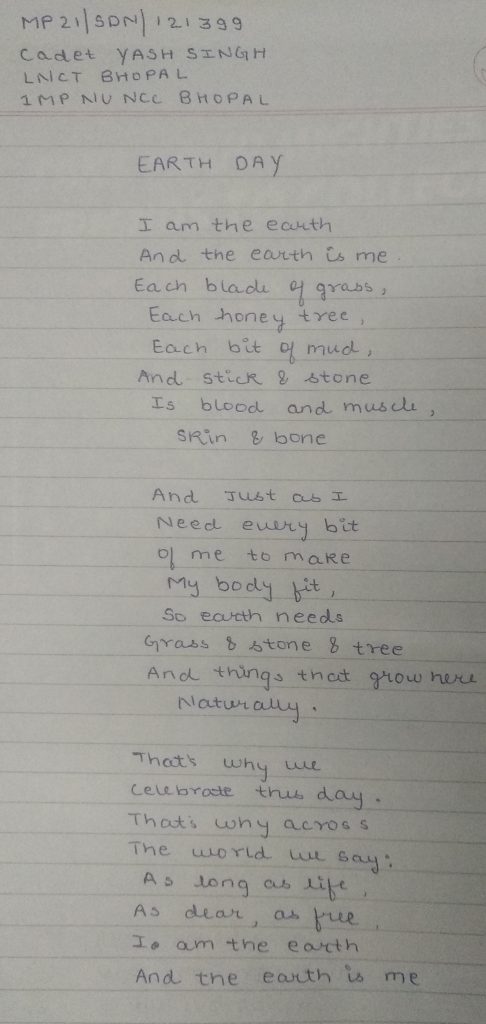 MP21/SDN/121399
Cadet YASH SINGH
LNCT BHOPAL
1MP NU NCC BHOPAL
EARTH DAY
I am the earth
And the earth is me.
Each blade of grass,
Each honey tree,
Each bit of mud,
And stick & stone
Is blood and muscle,
Skin & bone
And Just as I
Need every bit
of me to make
My body fit,
So earth needs
Grass & stone & tree
And things that grow here
Naturally.
That's why we
Celebrate this day.
That's why across
The world we say:
As long as life,
As dear, as free,
I am the earth
And the earth is me